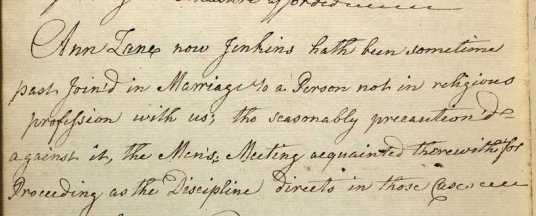 afforded
Ann Lane now Jenkins hath been sometime
past Join'd in Marriage to a Person not in religious
profession with us; tho seasonably precaution'd
against it, the Men's Meeting acquainted therewith for
Proceeding as the Discipline directs in those Cases